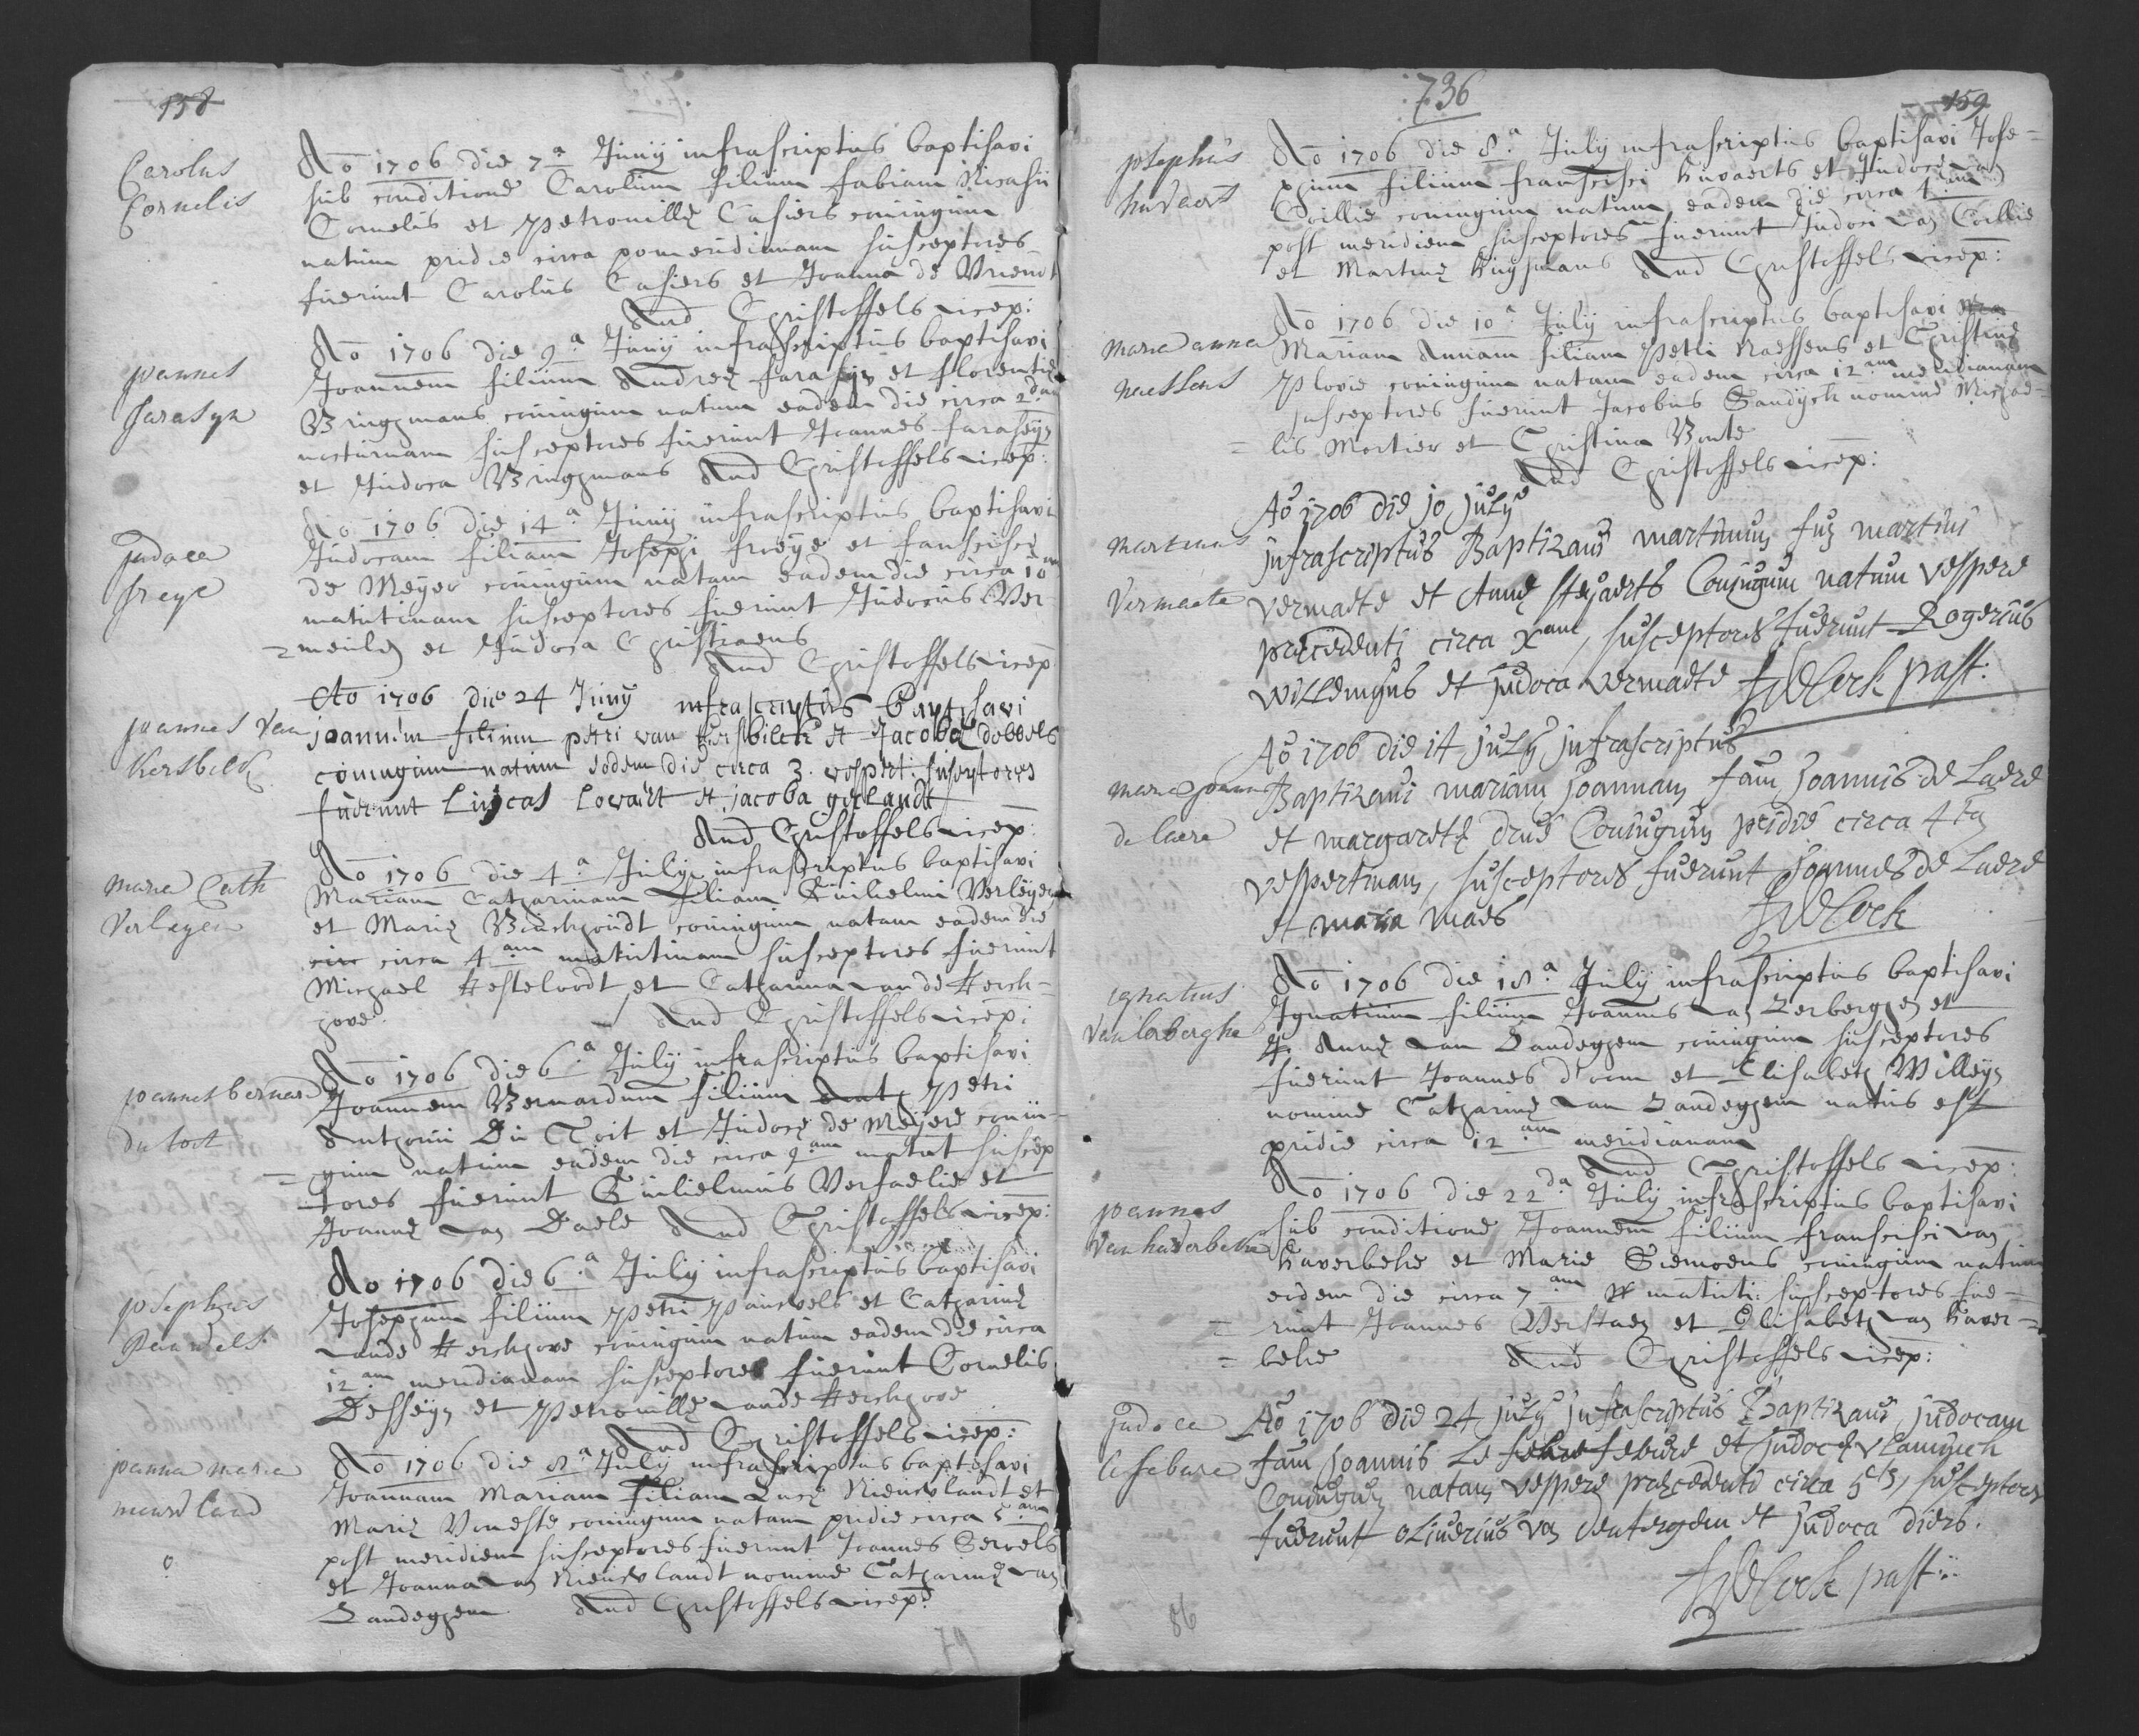 158
Carolus
Cornelis
Ao 1706 die 7a Junij infrascriptus baptisavi
sub conditione Carolum filium fabiani Nicasii
Cornelis et Petronillę Casiers coniugum
natum pridie circa pomeridianam susceptores
fuerunt Carolus Casiers et Joanna de Vriendt
And Christoffels vicep:
joannes
farasyn
Ao 1706 die 9a Junij infrascriptus baptisavi
Joannem filium Andreę farasijn et florentię
Bringhmans coniugum natum eadem die circa 2dam
nocturnam susceptores fuerunt Joannes faraseijn
et Judoca Bringhmans And Christoffels vicep:
judoca
freye
Ao 1706 die 14a Junij infrascriptus baptisavi
Judocam filiam Josephi freÿe et franscisce
de Meÿer coniugum natam eadem die circa 10am
matutinam susceptores fuerunt Judocus Ver-
=meulen et Judoca Christiaens
And Christoffels vicep
joannes van
Kersbilck
Ao 1706 die 24 Junij infrascriptus baptisavi
joannem filium petri van kersbilck et Jacobę dobbels
coniugum natum eodem die circa 3. vespert: susceptores
fuerunt Lucas Lovaert et jacoba geilandt
And Christoffels vicep:
maria Cath
Verleyen
Ao 1706 die 4a Julij infrascriptus baptisavi
Mariam Catharinam filiam Guilielmi Verleÿen
et Marię Winckhondt coniugum natam eadem die
circ circa 4am matutinam susceptores fuerunt
Michael Hesteloodt et Catharina van de Kerck=
hove. And Christoffels vicep:
joannes bernard
du toict
Ao 1706 die 6a Julij infrascriptus baptisavi
Joannem Bernardum filium Ant Petri
Anthonii Du Toit et Judocę de Meÿere coniu-
= gum natum eadem die circa 9am matut suscep
tores fuerunt Guilielmus Versaelie et
Joannę van Daele And Christoffels vicep:
josephus
Pauwels
Ao 1706 die 6a Julij infrascriptus baptisavi
Josephum filium Petri Pauwels et Catharinę
vande Kerckhove coniugum natum eadem die circa
12am meridianam susceptores fuerunt Cornelis
Desseijn et Petronillę vande Kerckhove
And Christoffels vicep:
joanna maria
nieuvlaed
Ao 1706 die 8a Julij infrascriptus baptisavi
Joannam Mariam filiam Lucę Nieuwlandt et
Marię Vroeste coniugum natam pridie circa 5am
post meridiem susceptores fuerunt Joannes Servels
et Joanna van Nieuwlandt nomine Catharinę van
Landeghem And Christoffels vicep:
79
736
159
josephus
huvaert
Ao 1706 die 8a Julij infrascriptus baptisavi Jose=
phum filium franscisci huvaerts et Judocę van
Coillie coniugum natum eadem die circa 4am
post meridiem susceptores fuerunt Judoci van Coillie
et Martinę huyghmans And Christoffels vicep:
maria anna
naessens
Ao 1706 die 10a Julij infrascriptus baptisavi
Mariam Annam filiam Petri Naessens et Christinę
Plovie coniugum natam eadem circa 12am meridianam
susceptores fuerunt Jacobus Sandÿck nomine Michae=
= lis Mortier et Christina Bonte
And Christoffels vicep:
martinus
Vermaete
Ao 1706 die 10 julÿ
infrascriptus Baptizavi martinum fum martini
vermaete et Annę steyaerts Coniugum natum vespere
precedenti circa Xam, susceptores fuerunt Rogerius
willemijns et judoca vermaete F De Cock past:
maria joanna
de laere
Ao 1706 die 14 julÿ infrascriptus
Baptizavi mariam joannam fam joannis de Laere
et margaretę drus Coniugum pridie circa 4ta
vespertinam, susceptores fuerunt joannes de Laere
et maria maes F De Cock
ignatius
van lerberghe
Ao 1706 die 18a Julij infrascriptus baptisavi
Ignatium filium Joannis van Lerberghen et
Annę van Landeghem coniugum susceptores
fuerunt Joannes d'oom et Elisabeth Willeÿn
nomine Catharinę van Landeghem natus est
pridie circa 12am meridianam
And Christoffels vicep:
joannes
van haverbeke
Ao 1706 die 22da Julij infrascriptus baptisavi
sub conditione Joannem filium franscisci van
haverbeke et Marie Siemoens coniugum natum
eidem die circa 7am matuti: susceptores fue=
= runt Joannes Verstaen et Elisabeth van haver=
= beke And Christoffels vicep:
judoca
lefebure
Ao 1706 die 24 julÿ infrascriptus Baptizavi judocam
fam joannis Le febure et judocę vlaminck
Coniugum natam vespere precedenti circa 5ta, susceptores
fuerunt oliuerius van dentergem et judoca diers.
F De Cock past:
86